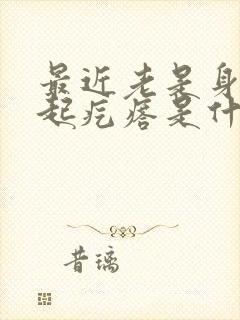 最近老是身
起疙瘩是什
昔璃